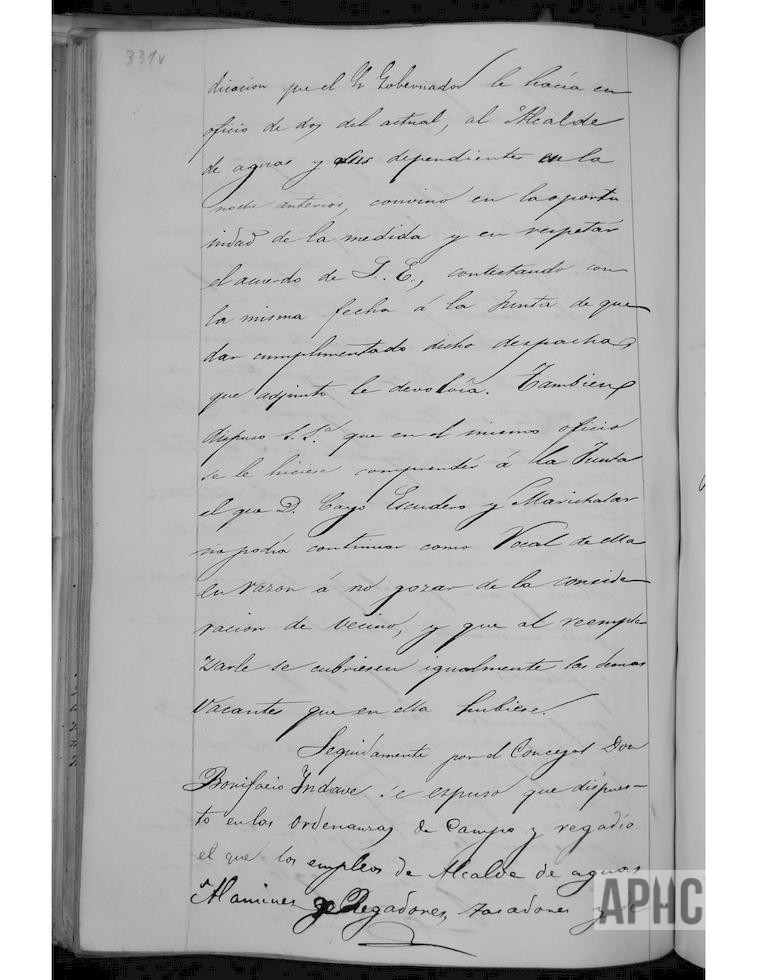 331v
dicacion que el Sr Gobernador le hacía en
oficio de dos del actual, al Alcalde
de aguas y sus dependientes en la
noche anterior, convino en la oportu
nidad de la medida y en respetar
el acuerdo de S. E., contestando con
la misma fecha á la Junta de que
dar cumplimentado dicho despacho
que adjunto le devolvia. Tambien
dispuso S.Sª que en el mismo oficio
se le hiciese comprender á la Junta
el que D. Cayo Escudero y Marichalar
no podía continuar como Vocal de ella
en razon á no gozar de la conside
racion de vecino, y que al reempla
zarle se cubriesen igualmente las demas
vacantes que en ella hubiese.
Seguidamente por el Concejal Don
Bonifacio Yndave se espuso que dispues-
to en las Ordenanzas de Campo y regadío
el que los empleos de Alcalde de aguas
Alamines Regadores, tasadores y de
APHC